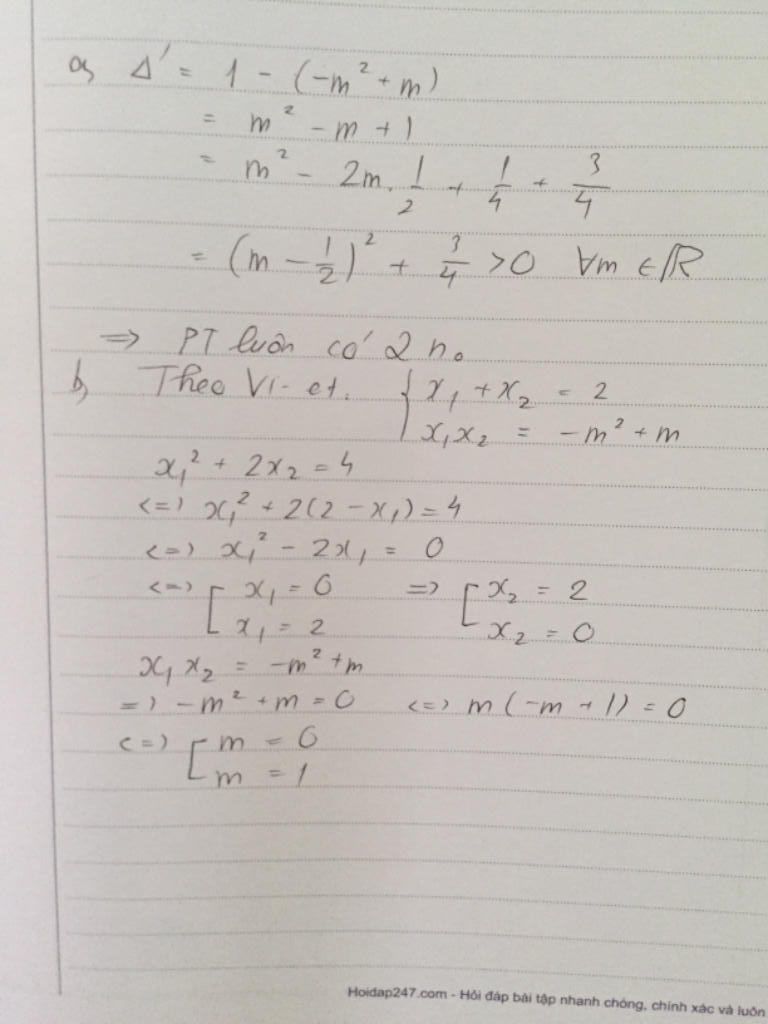 a, Δ' = 1 - (-m² + m)
= m² - m + 1
= m² - 2m . 1/2 + 1/4 + 3/4
= (m - 1/2)² + 3/4 > 0 ∀m ∈ ℝ
=> PT luôn có 2 n₀
b, Theo Vi-et. { x₁ + x₂ = 2
x₁x₂ = -m² + m
x₁² + 2x₂ = 4
<=> x₁² + 2(2 - x₁) = 4
<=> x₁² - 2x₁ = 0
<=> [ x₁ = 0 => [ x₂ = 2
x₁ = 2 x₂ = 0
x₁x₂ = -m² + m
=> -m² + m = 0 <=> m(-m + 1) = 0
<=> [ m = 0
m = 1
Hoidap247.com - Hỏi đáp bài tập nhanh chóng, chính xác và luôn